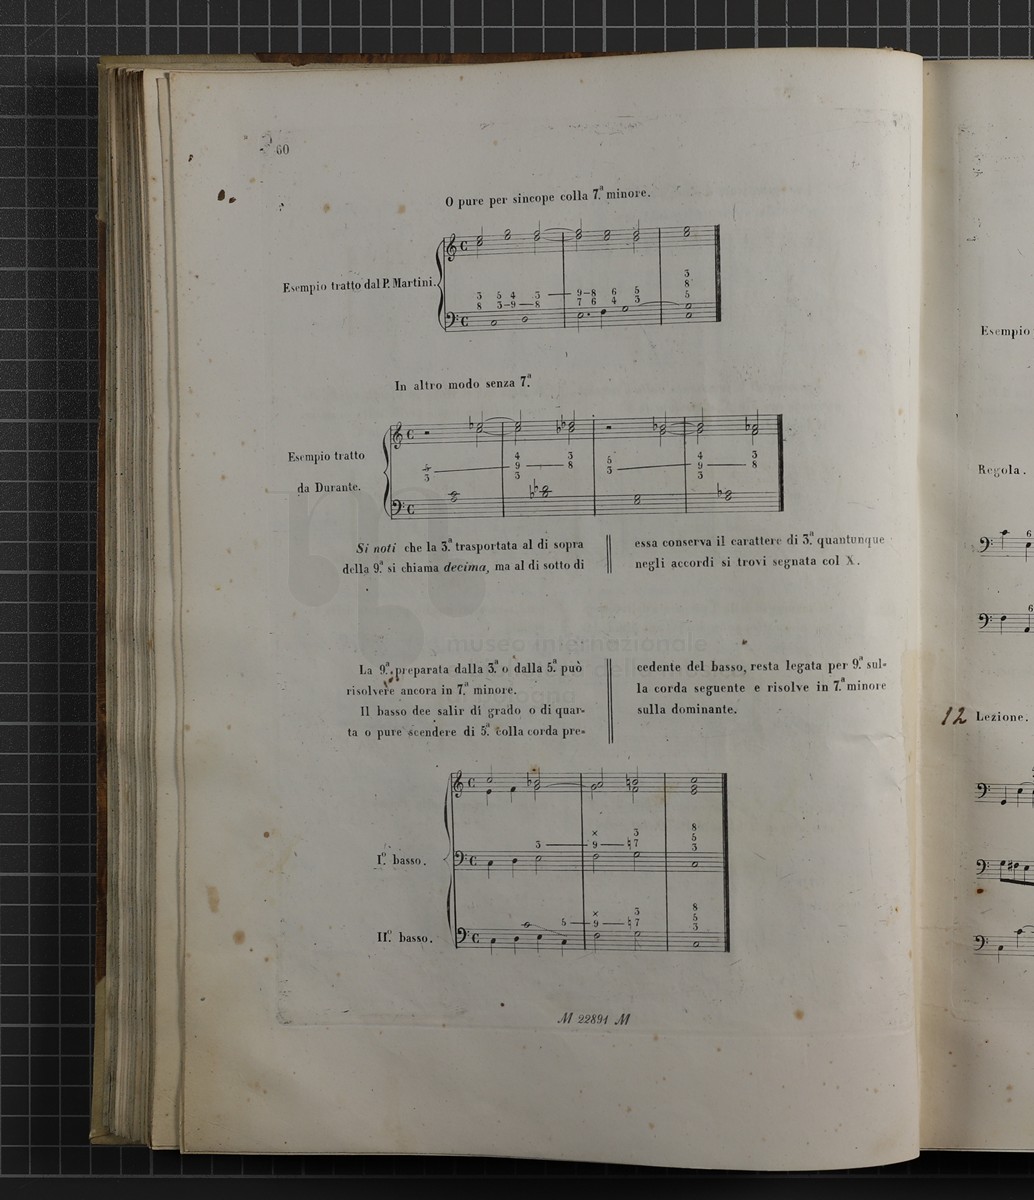 60
O pure per sincope colla 7.ª minore.
Esempio tratto dal P. Martini.
3 5 4 3 9-8 6 5
8 3-9-8 7 6 4 3
3
8
5
In altro modo senza 7.ª
Esempio tratto
da Durante.
5 4 3 5 4 3
3 9 8 3 9 8
3 3
Si noti che la 3.ª trasportata al di sopra
della 9.ª si chiama decima, ma al di sotto di
essa conserva il carattere di 3.ª quantunque
negli accordi si trovi segnata col X.
museo internazionale
La 9.ª preparata dalla 3.ª o dalla 5.ª può
risolvere ancora in 7.ª minore.
Il basso dee salir di grado o di quar-
ta o pure scendere di 5.ª colla corda pre-
cedente del basso, resta legata per 9.ª sul-
la corda seguente e risolve in 7.ª minore
sulla dominante.
Iº. basso.
3 9 7
× 3
8
5
3
IIº. basso.
5 9 7
× 3
8
5
3
M 22891 M
Esempio
Regola.
6
6
12 Lezione.